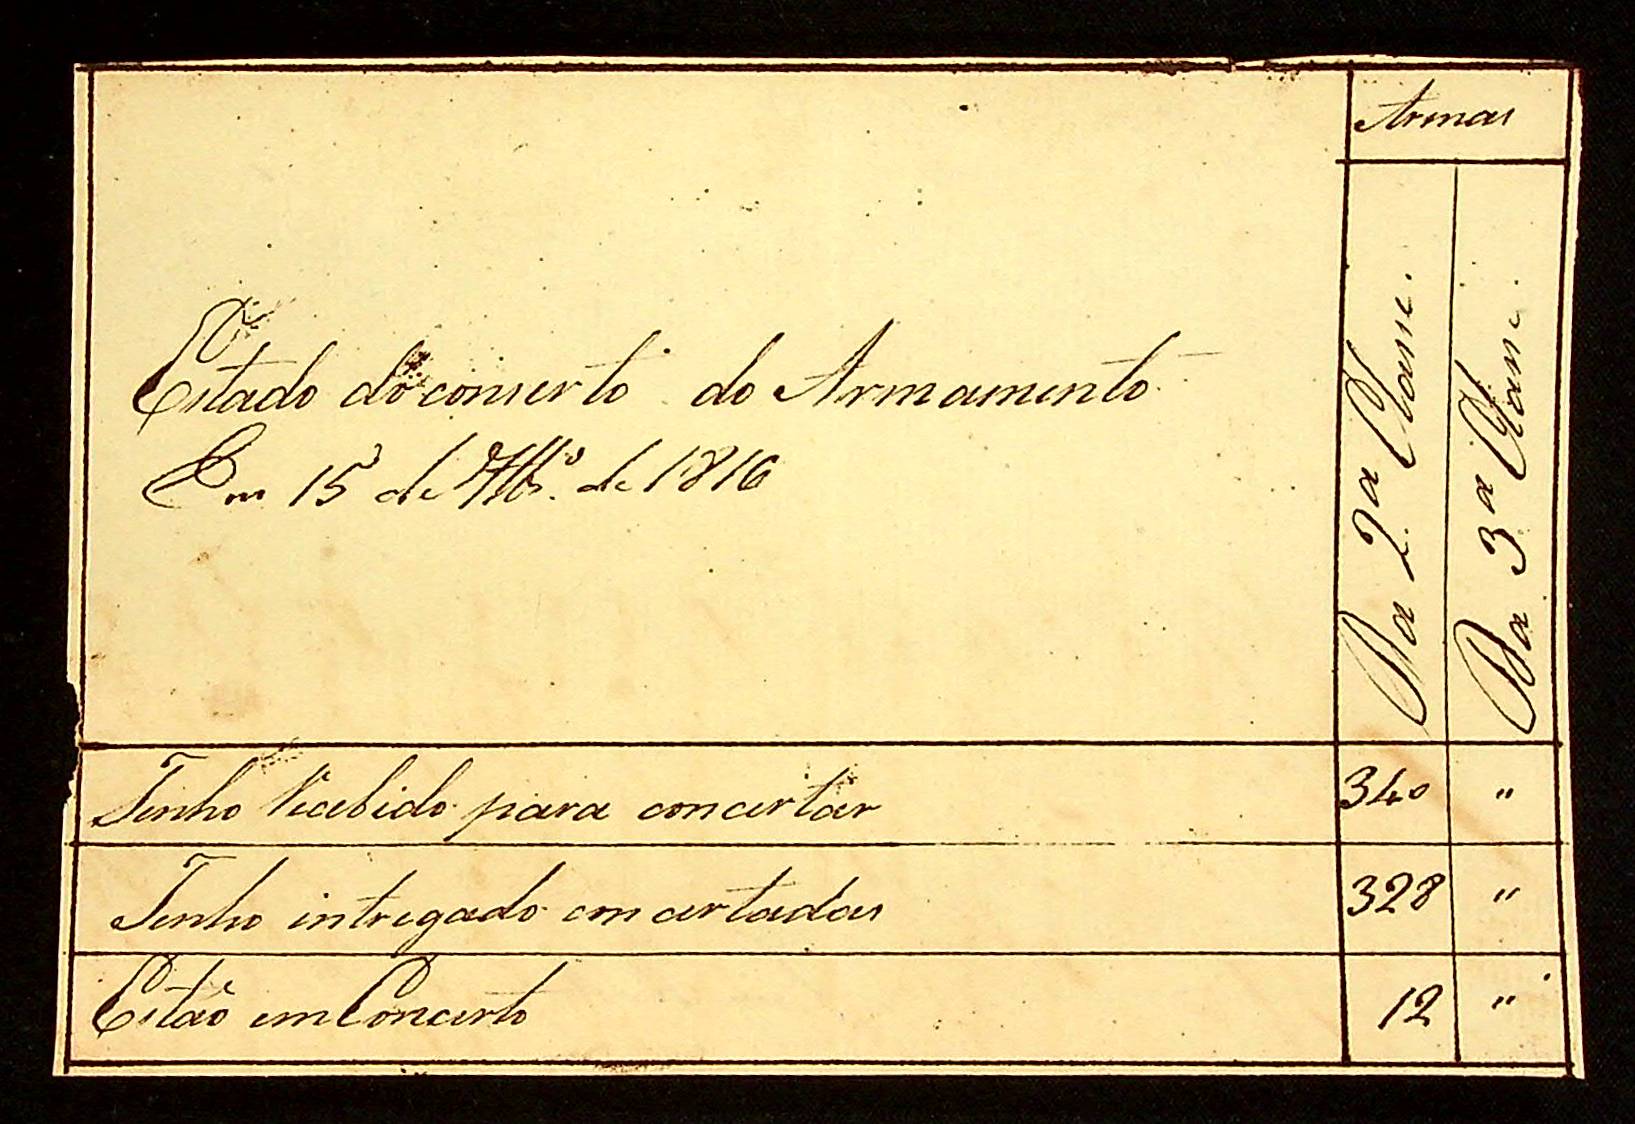 Armas
Da 2.ª Classe.
Da 3ª Classe.
Estado do conserto do Armamento
Em 15 de de 1816
Tenho Recebido para concertar 340 "
Tenho intregado concertadas 328 "
Estão em Concerto 12 "